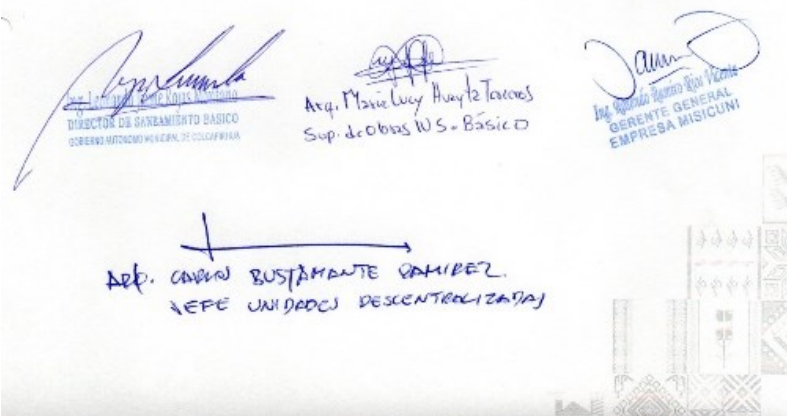 Ing. Leonardo Rojas
DIRECTOR DE SANEAMIENTO BASICO
GOBIERNO AUTONOMO MUNICIPAL DE COLCAPIRHUA
Arq. Marie Lucy Huayta
Sup. de Obras U S. Básico
Ing. Ramiro Rios Vicente
GERENTE GENERAL
EMPRESA MISICUNI
ARQ. CARLOS BUSTAMANTE RAMIREZ.
JEFE UNIDADES DESCENTRALIZADAS